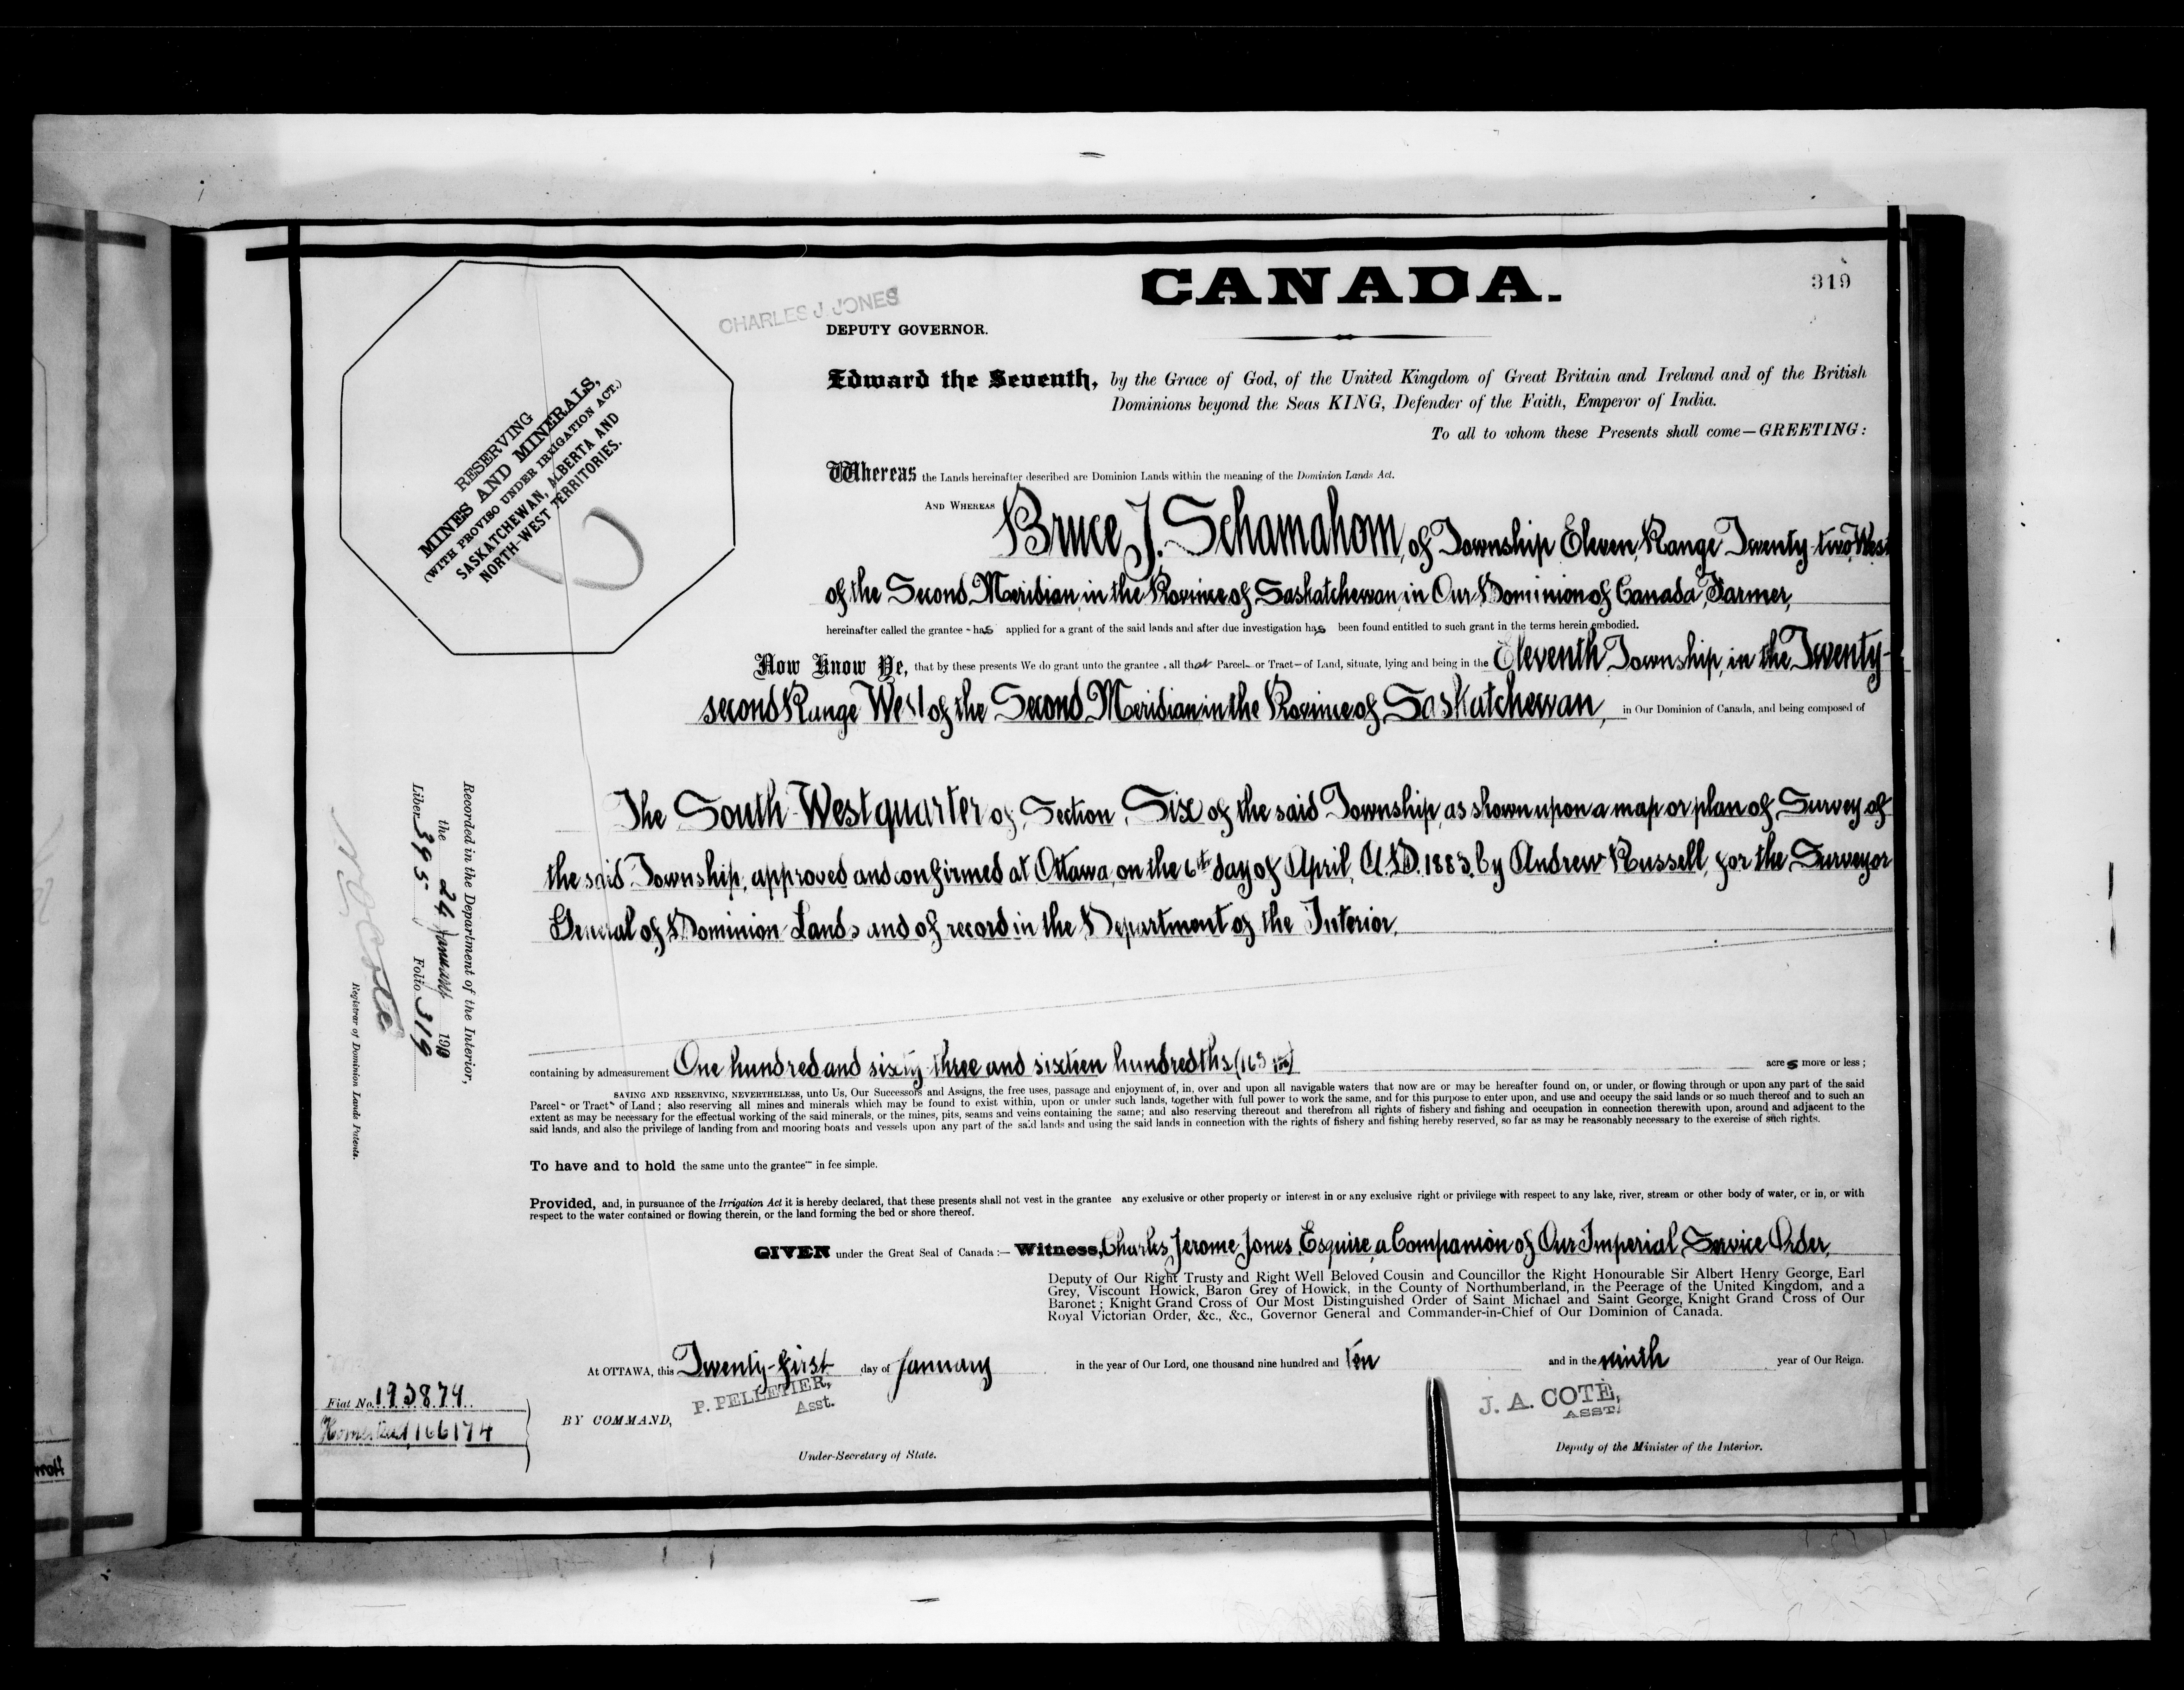 CANADA.
319
CHARLES J. JONES
DEPUTY GOVERNOR.
RESERVING
MINES AND MINERALS,
(WITH PROVISO UNDER IRRIGATION ACT.)
SASKATCHEWAN, ALBERTA AND
NORTH-WEST TERRITORIES.
Edward the Seventh, by the Grace of God, of the United Kingdom of Great Britain and Ireland and of the British
Dominions beyond the Seas KING, Defender of the Faith, Emperor of India.
To all to whom these Presents shall come—GREETING:
Whereas the Lands hereinafter described are Dominion Lands within the meaning of the Dominion Lands Act.
AND WHEREAS Bruce J. Schamahorn, of Township Eleven, Range Twenty-two, West
of the Second Meridian, in the Province of Saskatchewan, in Our Dominion of Canada, Farmer,
hereinafter called the grantee - has applied for a grant of the said lands and after due investigation has been found entitled to such grant in the terms herein embodied.
Now Know Ye, that by these presents We do grant unto the grantee , all that Parcel– or Tract– of Land, situate, lying and being in the Eleventh Township, in the Twenty-
second Range West of the Second Meridian in the Province of Saskatchewan, in Our Dominion of Canada, and being composed of
The South West quarter of Section Six of the said Township, as shown upon a map or plan of Survey of
the said Township, approved and confirmed at Ottawa, on the 6th day of April, A.D. 1883, by Andrew Russell, for the Surveyor
General of Dominion Lands and of record in the Department of the Interior,
containing by admeasurement One hundred and sixty-three and sixteen hundredths (163 16/100) acres more or less ;
SAVING AND RESERVING, NEVERTHELESS, unto Us, Our Successors and Assigns, the free uses, passage and enjoyment of, in, over and upon all navigable waters that now are or may be hereafter found on, or under, or flowing through or upon any part of the said
Parcel– or Tract– of Land ; also reserving all mines and minerals which may be found to exist within, upon or under such lands, together with full power to work the same, and for this purpose to enter upon, and use and occupy the said lands or so much thereof and to such an
extent as may be necessary for the effectual working of the said minerals, or the mines, pits, seams and veins containing the same; and also reserving thereout and therefrom all rights of fishery and fishing and occupation in connection therewith upon, around and adjacent to the
said lands, and also the privilege of landing from and mooring boats and vessels upon any part of the said lands and using the said lands in connection with the rights of fishery and fishing hereby reserved, so far as may be reasonably necessary to the exercise of such rights.
To have and to hold the same unto the grantee– in fee simple.
Provided, and, in pursuance of the Irrigation Act it is hereby declared, that these presents shall not vest in the grantee any exclusive or other property or interest in or any exclusive right or privilege with respect to any lake, river, stream or other body of water, or in, or with
respect to the water contained or flowing therein, or the land forming the bed or shore thereof.
GIVEN under the Great Seal of Canada :— Witness, Charles Jerome Jones, Esquire, a Companion of Our Imperial Service Order,
Deputy of Our Right Trusty and Right Well Beloved Cousin and Councillor the Right Honourable Sir Albert Henry George, Earl
Grey, Viscount Howick, Baron Grey of Howick, in the County of Northumberland, in the Peerage of the United Kingdom, and a
Baronet ; Knight Grand Cross of Our Most Distinguished Order of Saint Michael and Saint George, Knight Grand Cross of Our
Royal Victorian Order, &c., &c., Governor General and Commander-in-Chief of Our Dominion of Canada.
At OTTAWA, this Twenty-first day of January in the year of Our Lord, one thousand nine hundred and Ten and in the ninth year of Our Reign.
P. PELLETIER,
Asst.
BY COMMAND,
Under-Secretary of State.
J. A. COTÉ,
ASST.
Deputy of the Minister of the Interior.
Recorded in the Department of the Interior,
the 24 January 1910
Liber 395 Folio 319
Registrar of Dominion Lands Patents.
Fiat No. 193874
Homestead 166174